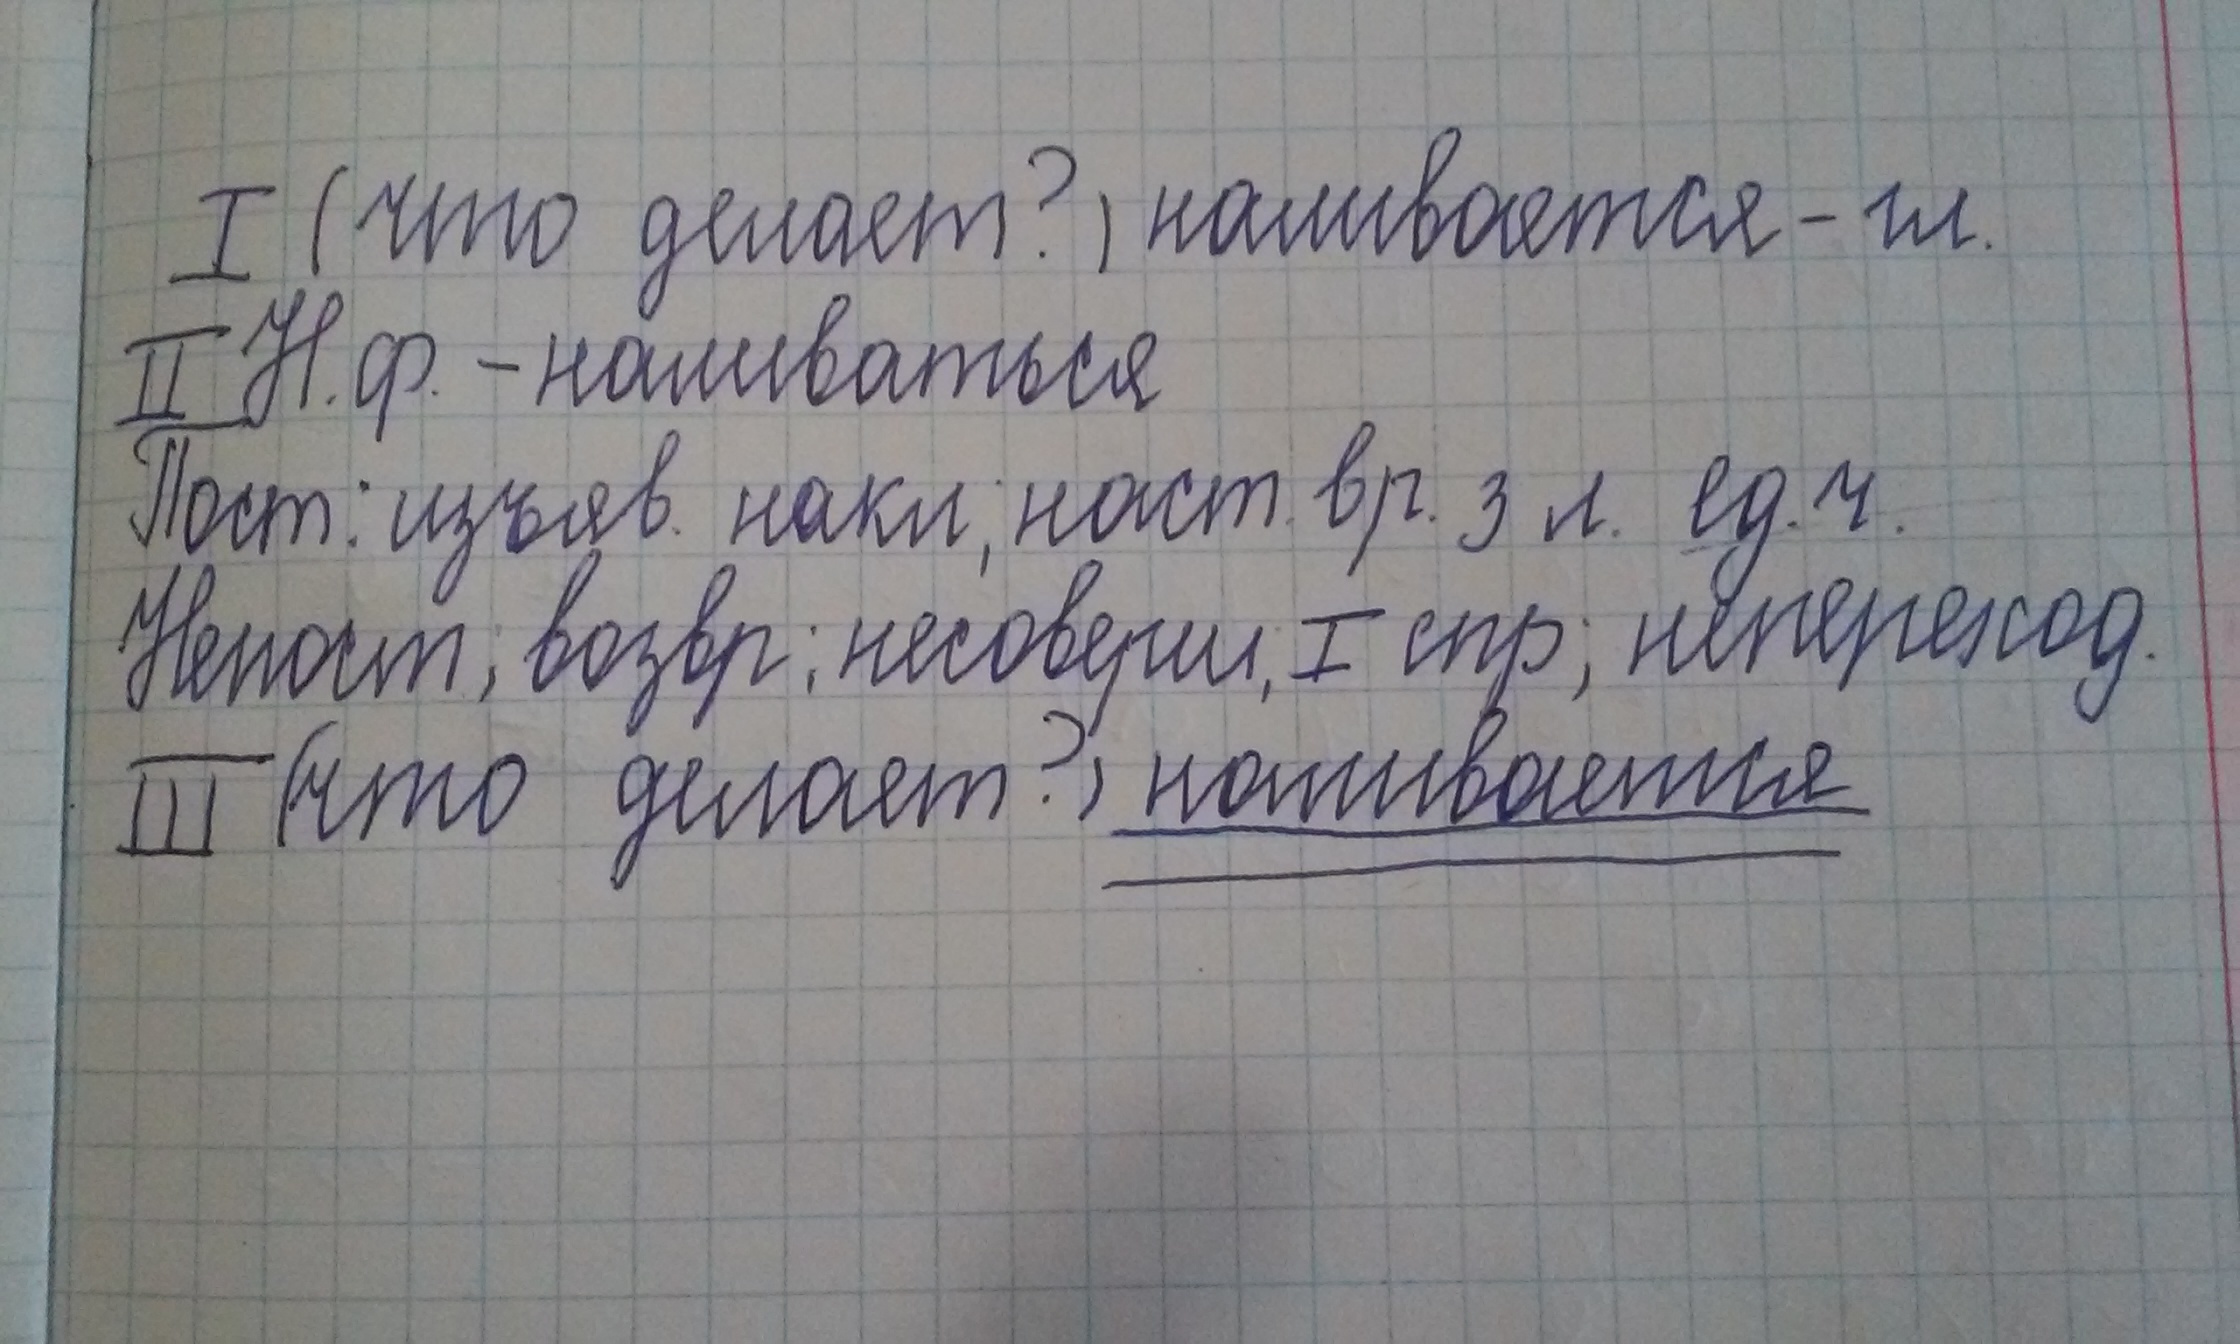 I (что делает?) наливается - гл.
II Н.ф. - наливаться
Пост: изъяв. накл, наст. вр. 3 л. ед. ч.
Непост; возвр; несоверш, I спр; непереход.
III (что делает?) наливается